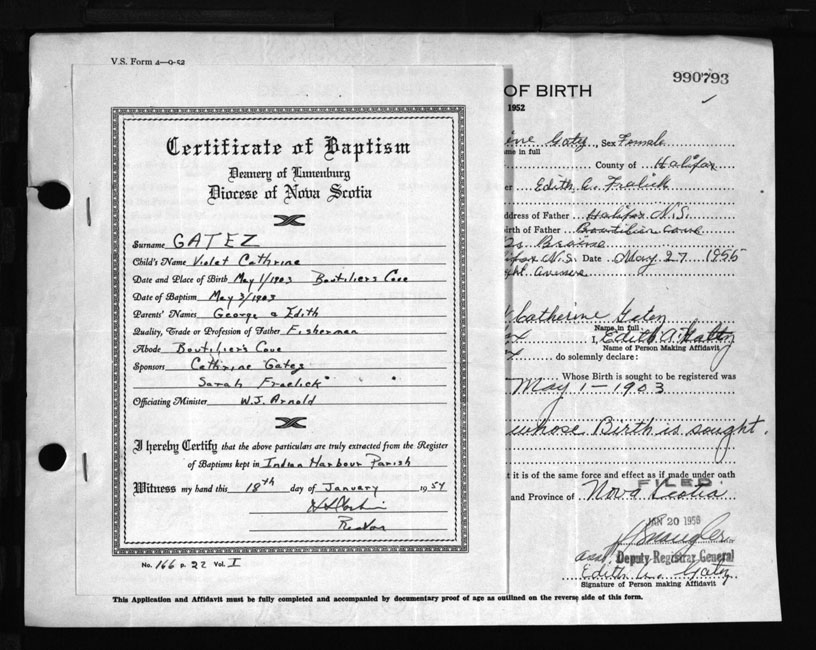 V.S. Form 4-9-52
990793
OF BIRTH
1952
Certificate of Baptism
Deanery of Lunenburg
Diocese of Nova Scotia
Surname GATEZ
Child's Name Violet Cathrine
Date and Place of Birth May 1/1903 Boutiliers Cove
Date of Baptism May 3/1903
Parents' Names George & Edith
Quality, Trade or Profession of Father Fisherman
Abode Boutiliers Cove
Sponsors Cathrine Gatez
Sarah Fraelick
Officiating Minister W.J. Arnold
I hereby Certify that the above particulars are truly extracted from the Register
of Baptisms kept in Indian Harbour Parish
Witness my hand this 18th day of January 1954
Rector
No. 166 p. 22 Vol. I
ine Gatez, Sex Female
me in full
County of Halifax
er Edith A. Fralick
ddress of Father Halifax N.S.
irth of Father Boutilier Cove
fax N.S. Date May 27 1955
Avenue
Catherine Gatez
Name in full
I, Edith A. Gatez
Name of Person Making Affidavit
do solemnly declare:
Whose Birth is sought to be registered was
May 1-1903
whose Birth is sought.
t it is of the same force and effect as if made under oath
FILED
and Province of Nova Scotia
JAN 20 1956
Deputy-Registrar General
Edith A. Gatez
Signature of Person making Affidavit
This Application and Affidavit must be fully completed and accompanied by documentary proof of age as outlined on the reverse side of this form.